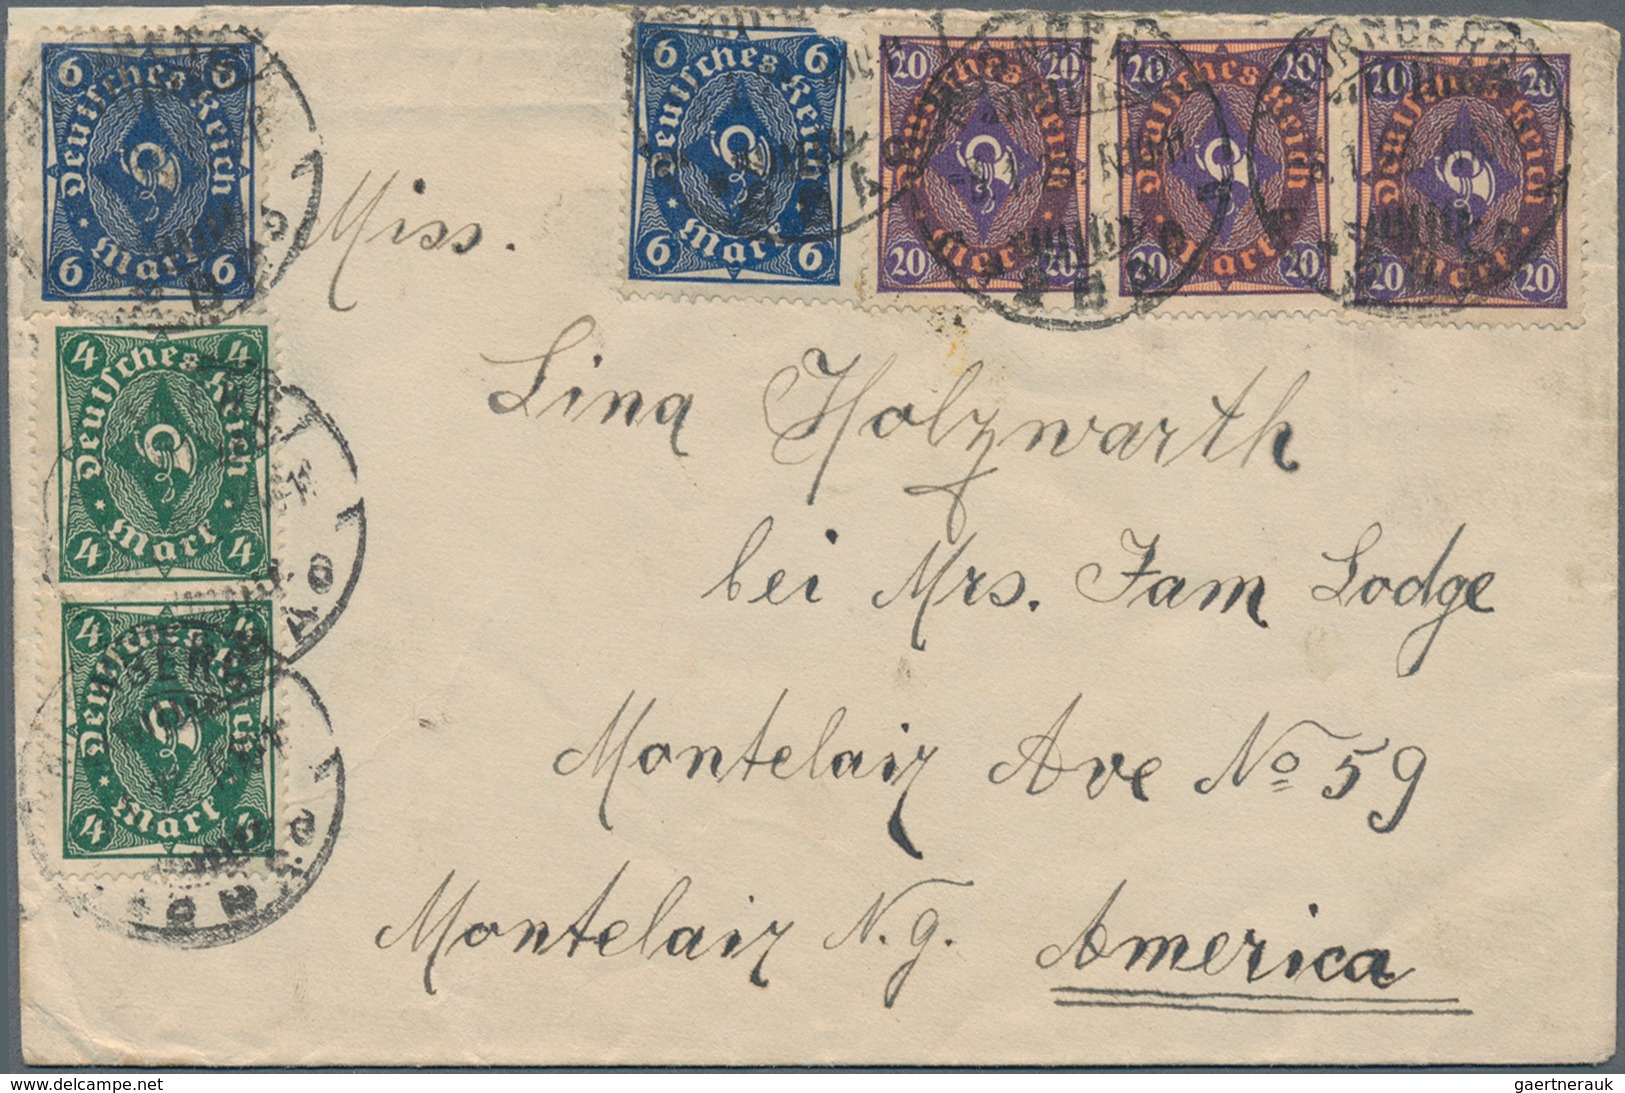 6 6
Deutsches Reich
6 6
Mark
6 6
Deutsches Reich
6 6
Mark
20 20
Deutsches Reich
20 20
Mark
20 20
Deutsches Reich
20 20
Mark
20 20
Deutsches Reich
20 20
Mark
Miss.
4 4
Deutsches Reich
4 4
Mark
4 4
Deutsches Reich
4 4
Mark
Lina Holzwarth
bei Mrs. Fam Lodge
Montelair Ave No 59
Montelair N. g. America
www.delcampe.net
gaertnerauk